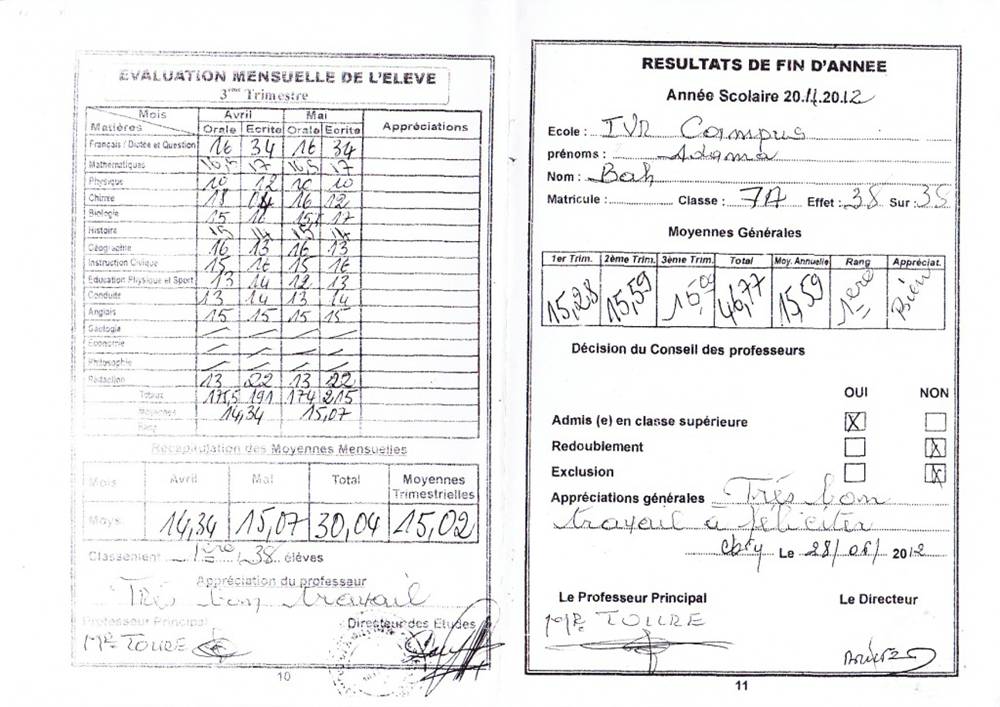 EVALUATION MENSUELLE DE L'ELEVE
3ème Trimestre
Mois Avril Mai Appréciations
Matières Orale Ecrite Orale Ecrite
Français / Dictée et Question 16 34 16 34
Mathématiques 16,5 17 16,5 17
Physique 10 12 10 10
Chimie 18 16 12
Biologie 15 16 15 17
Histoire 15 14 15 14
Géographie 16 13 16 13
Instruction Civique 15 16 15 16
Education Physique et Sport 13 14 12 13
Conduite 13 14 13 14
Anglais 15 15 15 15
Géologie
Economie
Philosophie
Rédaction 13 22 13 22
Totaux 175,5 191 174 215
Moyennes 14,34 15,07
Rang
Récapitulation des Moyennes Mensuelles
Mois Avril Mai Total Moyennes Trimestrielles
Moys. 14,34 15,07 30,04 15,02
Classement 1ère /38 élèves
Appréciation du professeur
Très bon travail
Professeur Principal Directeur des Etudes
Mr TOURE
10
RESULTATS DE FIN D'ANNEE
Année Scolaire 2011.2012
Ecole : IVR Campus
prénoms : Adama
Nom : Bah
Matricule : Classe : 7A Effet : 38 Sur : 38
Moyennes Générales
1er Trim. 2ème Trim. 3ème Trim. Total Moy. Annuelle Rang Appréciat.
15,28 15,59 15,09 46,77 15,59 1ère Bien
Décision du Conseil des professeurs
OUI NON
Admis (e) en classe supérieure X
Redoublement X
Exclusion X
Appréciations générales Très bon
travail à féliciter
Cpry Le 28/06/2012
Le Professeur Principal Le Directeur
Mr TOURE
11